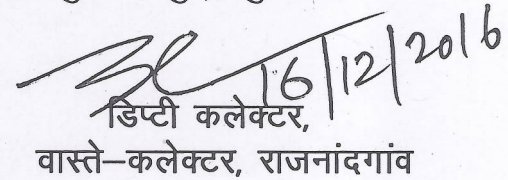 16/12/2016
डिप्टी कलेक्टर,
वास्ते–कलेक्टर, राजनांदगांव